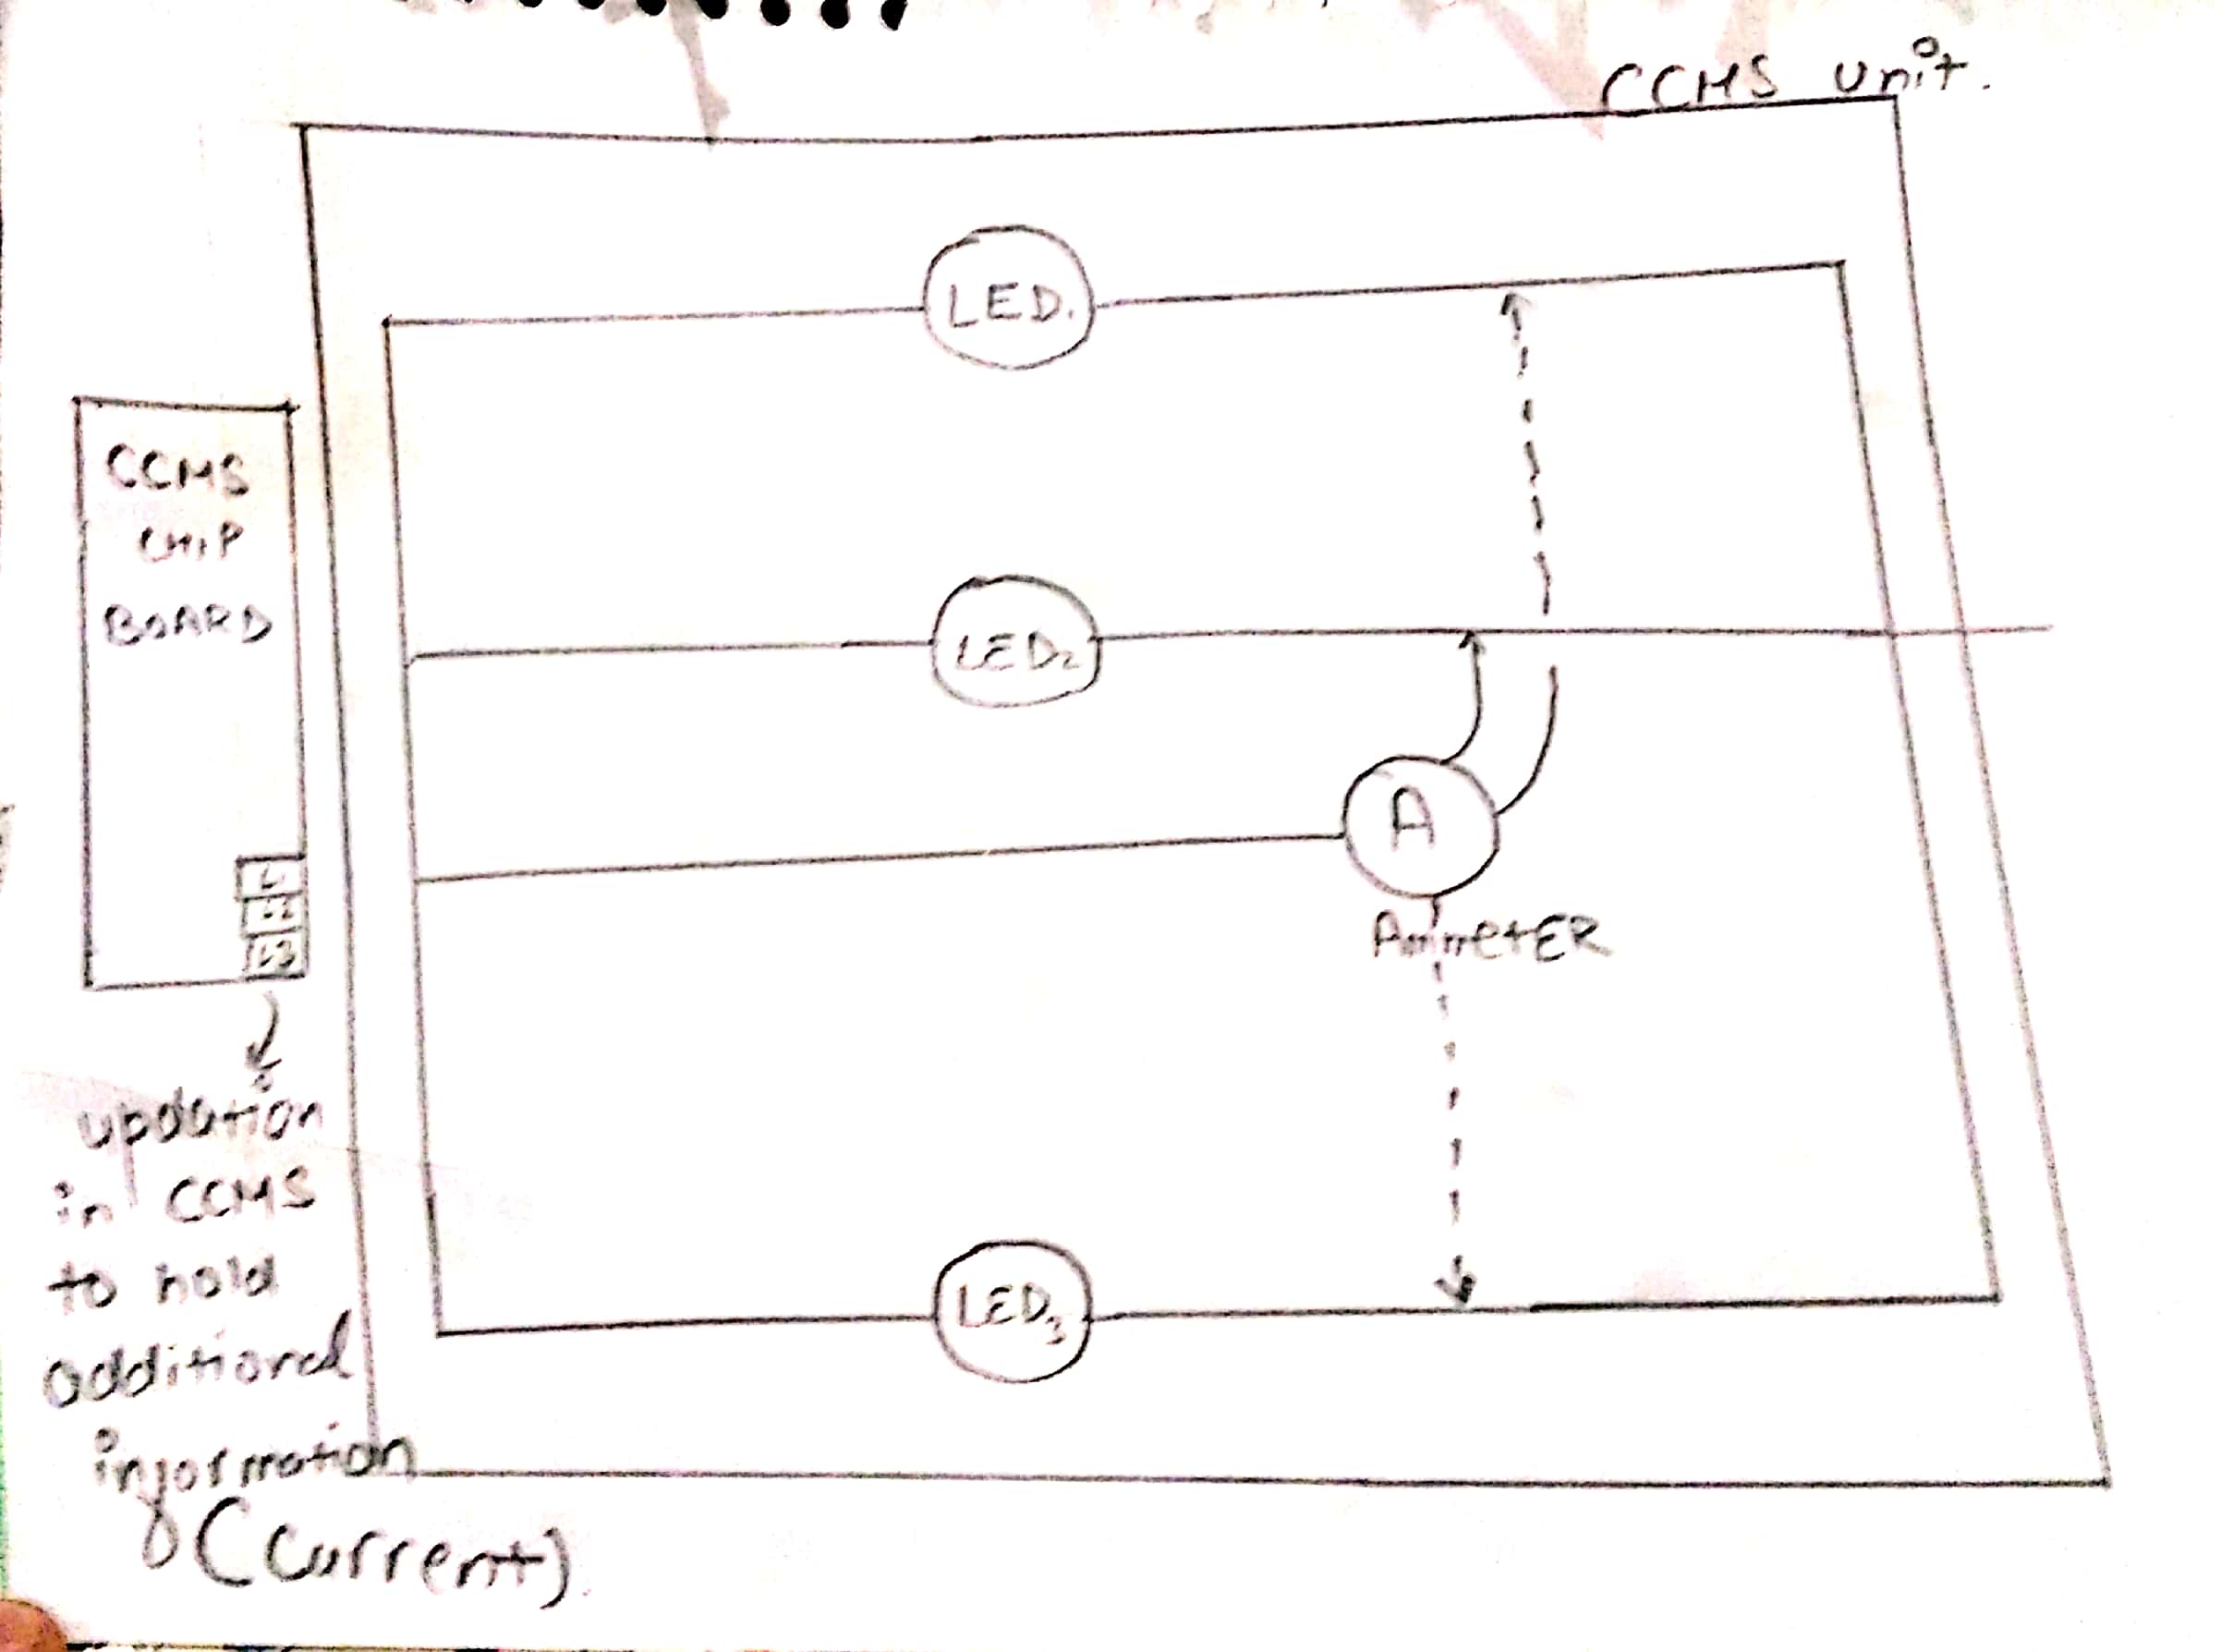 CCMS unit.
LED1
CCMS
CHIP
BOARD
LED2
A
AmmetER
L1
L2
L3
updation
in CCMS
to hold
additional
information
(current).
LED3